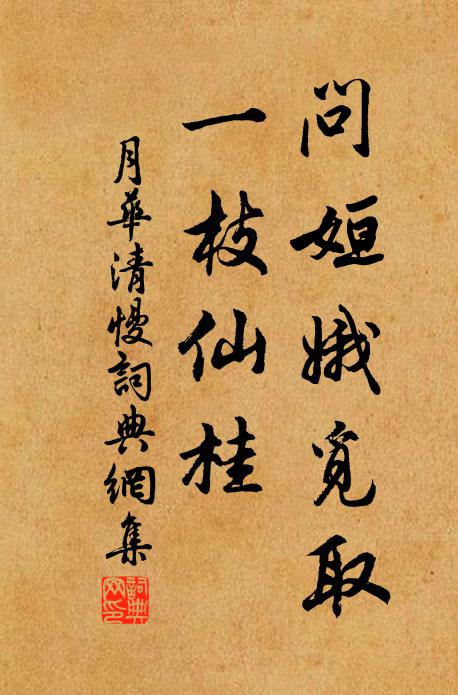 問姮娥覓取
一枝仙桂
月華清慢詞典網集
詞典網印